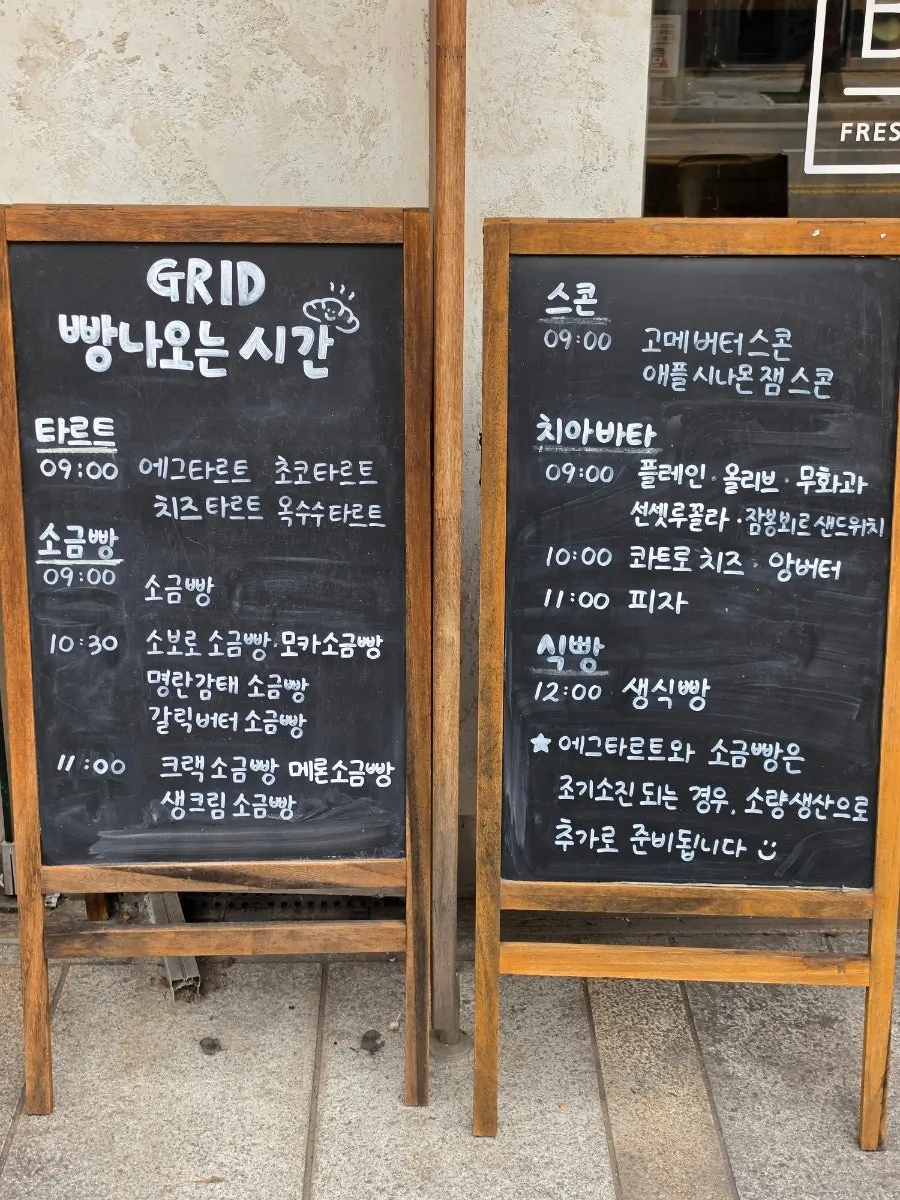 GRID
빵나오는 시간
타르트
09:00 에그타르트 초코타르트
치즈타르트 옥수수타르트
소금빵
09:00 소금빵
10:30 소보로 소금빵·모카소금빵
명란감태 소금빵
갈릭버터 소금빵
11:00 크랙소금빵 메론소금빵
생크림 소금빵
스콘
09:00 고메버터스콘
애플시나몬잼스콘
치아바타
09:00 플레인·올리브·무화과
선셋루꼴라·잠봉뵈르샌드위치
10:00 콰트로치즈·앙버터
11:00 피자
식빵
12:00 생식빵
★에그타르트와 소금빵은
조기소진 되는 경우, 소량생산으로
추가로 준비됩니다
FRES